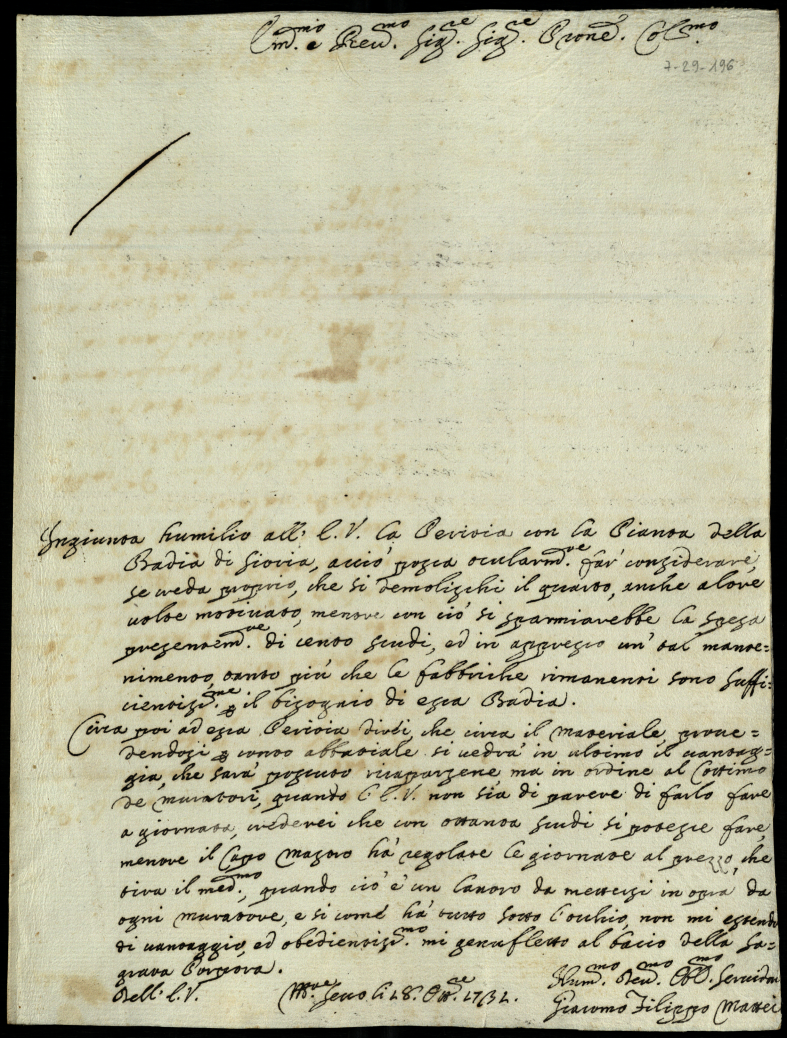 Em.mo e Reud.mo Sig.re Sig.re Prone. Col.mo
7-29-196
Ingiunta humilio all' E. V. la Perizia con la Pianta della
Badia di Giovia, acciò possa ocularm.te far considerare,
se creda proprio, che si demolischi il quarto, anche altre
volte motivato, mentre con ciò si sparmiarebbe la spesa
presentem.te di cento scudi, ed in appresso un' tal mante=
nimento, tanto più che le fabbriche rimanenti sono suffi=
cientiss.me p il bisognio di essa Badia.
Circa poi ad essa Perizia dirsi, che circa il materiale prove=
dendosi p conto abbatiale si vedrà in ultimo il vantag=
gia, che sarà possuto ricapparsene, ma in ordine al Cottimo
de muratori, quando l'E. V. non sia di parere di farlo fare
a giornata, crederei che con ottanta scudi si potesse fare,
mentre il Capo Mastro hà regolate le giornate al prezzo, che
tira il med.mo, quando ciò è un lavoro da mettersi in opra da
ogni muratore, e si come hà tutto sotto l'occhio, non mi estendo
di vantaggio, ed obedientiss.mo mi genufletto al bacio della Sa=
grata Porpora.
Dell' E. V. Li 28. Ott.re 1732. Hum.mo Deu.mo Obl.mo Servidore
Giacomo Filippo Mattei